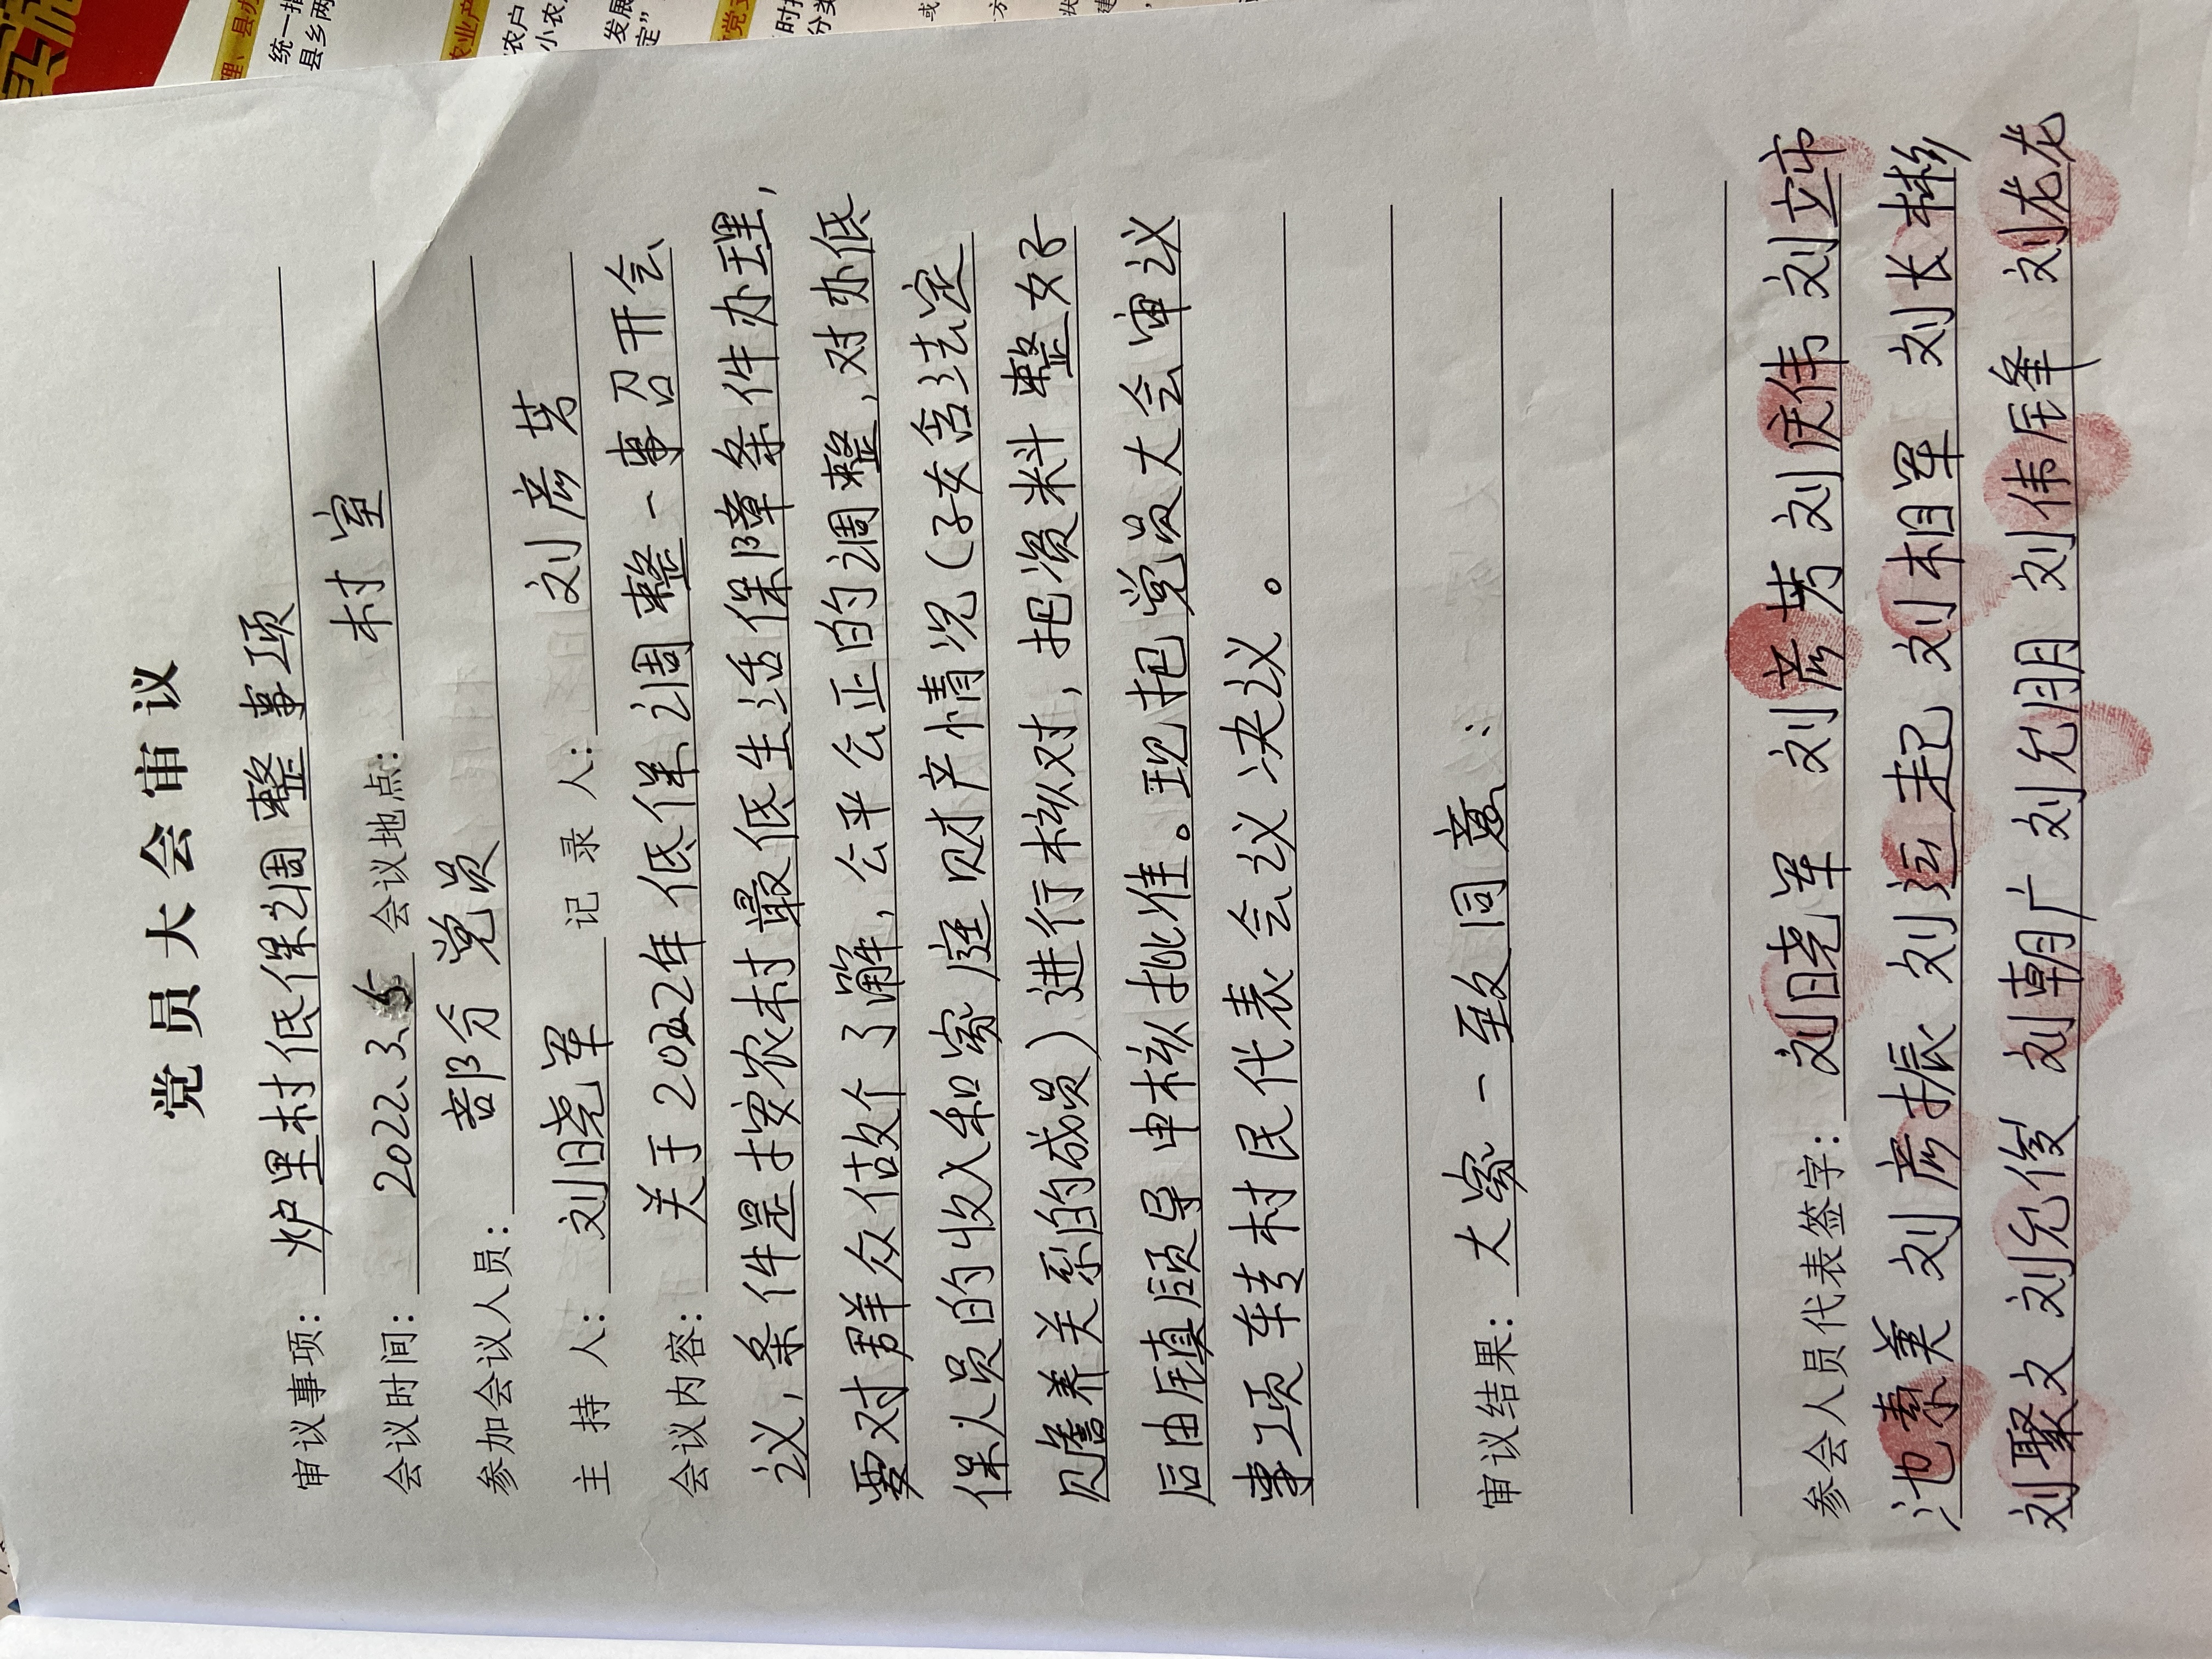 党员大会审议
审议事项: 炉里村低保调整事项
会议时间: 2022、3、5 会议地点: 村室
参加会议人员: 部分党员
主持人: 刘晓军 记录人: 刘彦芳
会议内容: 关于2022年低保调整一事召开会
议,条件是按农村最低生活保障条件办理,
要对群众做个了解,公平公正的调整,对办低
保人员的收入和家庭财产情况(子女含法定
赡养关系的成员)进行核对,把资料整好
后由镇领导申核批准。现把党员大会审议
事项转村民代表会议决议。
审议结果: 大家一致同意:
参会人员代表签字: 刘晓军 刘彦芳 刘庆伟 刘立市
池素美 刘彦振 刘运起 刘相军 刘长彬
刘聚文 刘允俊 刘朝广 刘允朋 刘伟锋 刘龙龙
理、县办
统一指
县乡两
农业产
农户
小农
发展
定”
党支
时
分类
或
方
状
建